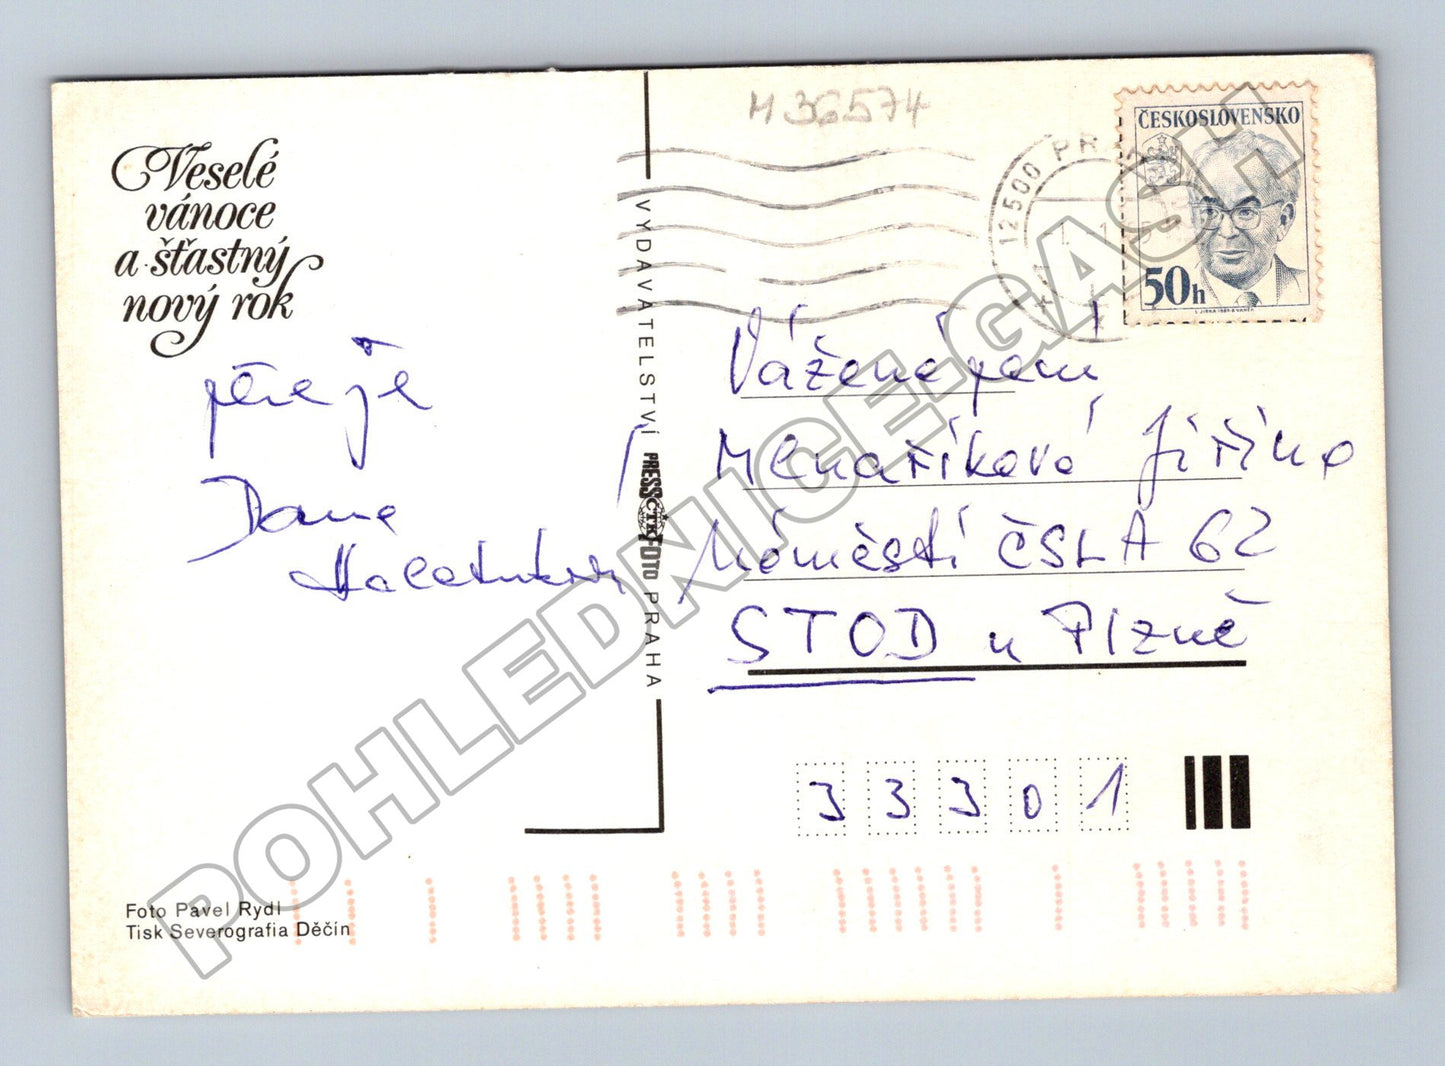 M 36574
Veselé
vánoce
a šťastný
nový rok
přeje
Dana
VYDAVATELSTVÍ PRESSFOTO PRAHA
ČTK
12500 PR
ČESKOSLOVENSKO
50h
Vážená paní
Mlnaříková Jiřina
Náměstí ČSLA 62
STOD u Plzně
33301
Foto Pavel Rydl
Tisk Severografia Děčín
POHLEDNICE-GASH